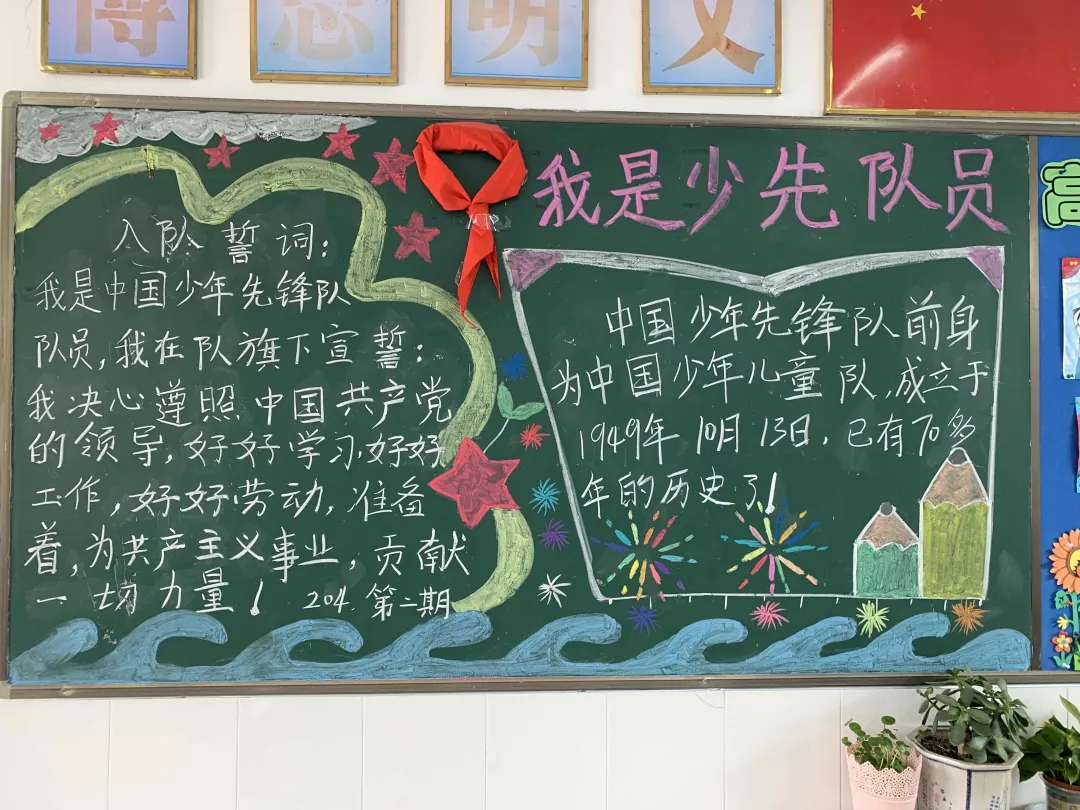 我是少先队员
入队誓词:
我是中国少年先锋队
队员,我在队旗下宣誓:
我决心遵照中国共产党
的领导,好好学习,好好
工作,好好劳动,准备
着,为共产主义事业,贡献
一切力量!
204 第二期
中国少年先锋队前身
为中国少年儿童队,成立于
1949年10月13日,已有70多
年的历史了!